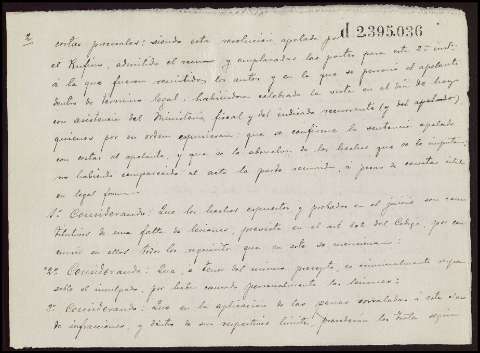 2
d 2.395.036
costas procesales: siendo esta resolucion apelada por
el Rufino, admitido el recurso y emplazadas las partes para esta 2ª inst.
á la que fueron remitidos los autos y en la que se personó el apelante
dentro de término legal: habiéndose celebrado la vista en el dia de hoy
con asistencia del Ministerio fiscal y del indicado recurrente (y del apelado),
quienes por su orden expusieron: que se confirme la sentencia apelada
con costas al apelante, y que se le absuelva de los hechos que se le imputan:
no habiendo comparecido al acto la parte recurrida, á pesar de constar citada
en legal forma=
1º Considerando: Que los hechos expuestos y probados en el juicio son cons
titutivos de una falta de lesiones, prevista en el art 602 del Código, por con
currir en ellos todos los requisitos que en este se mencionan:
2º Considerando: Que, á tenor del mismo precepto, es criminalmente respon
sable el inculpado, por haber causado personalmente las lesiones:
3º Considerando: Que en la aplicacion de las penas señaladas á esta clase
de infracciones, y dentro de sus respectivos límites, procederán los Trib. según